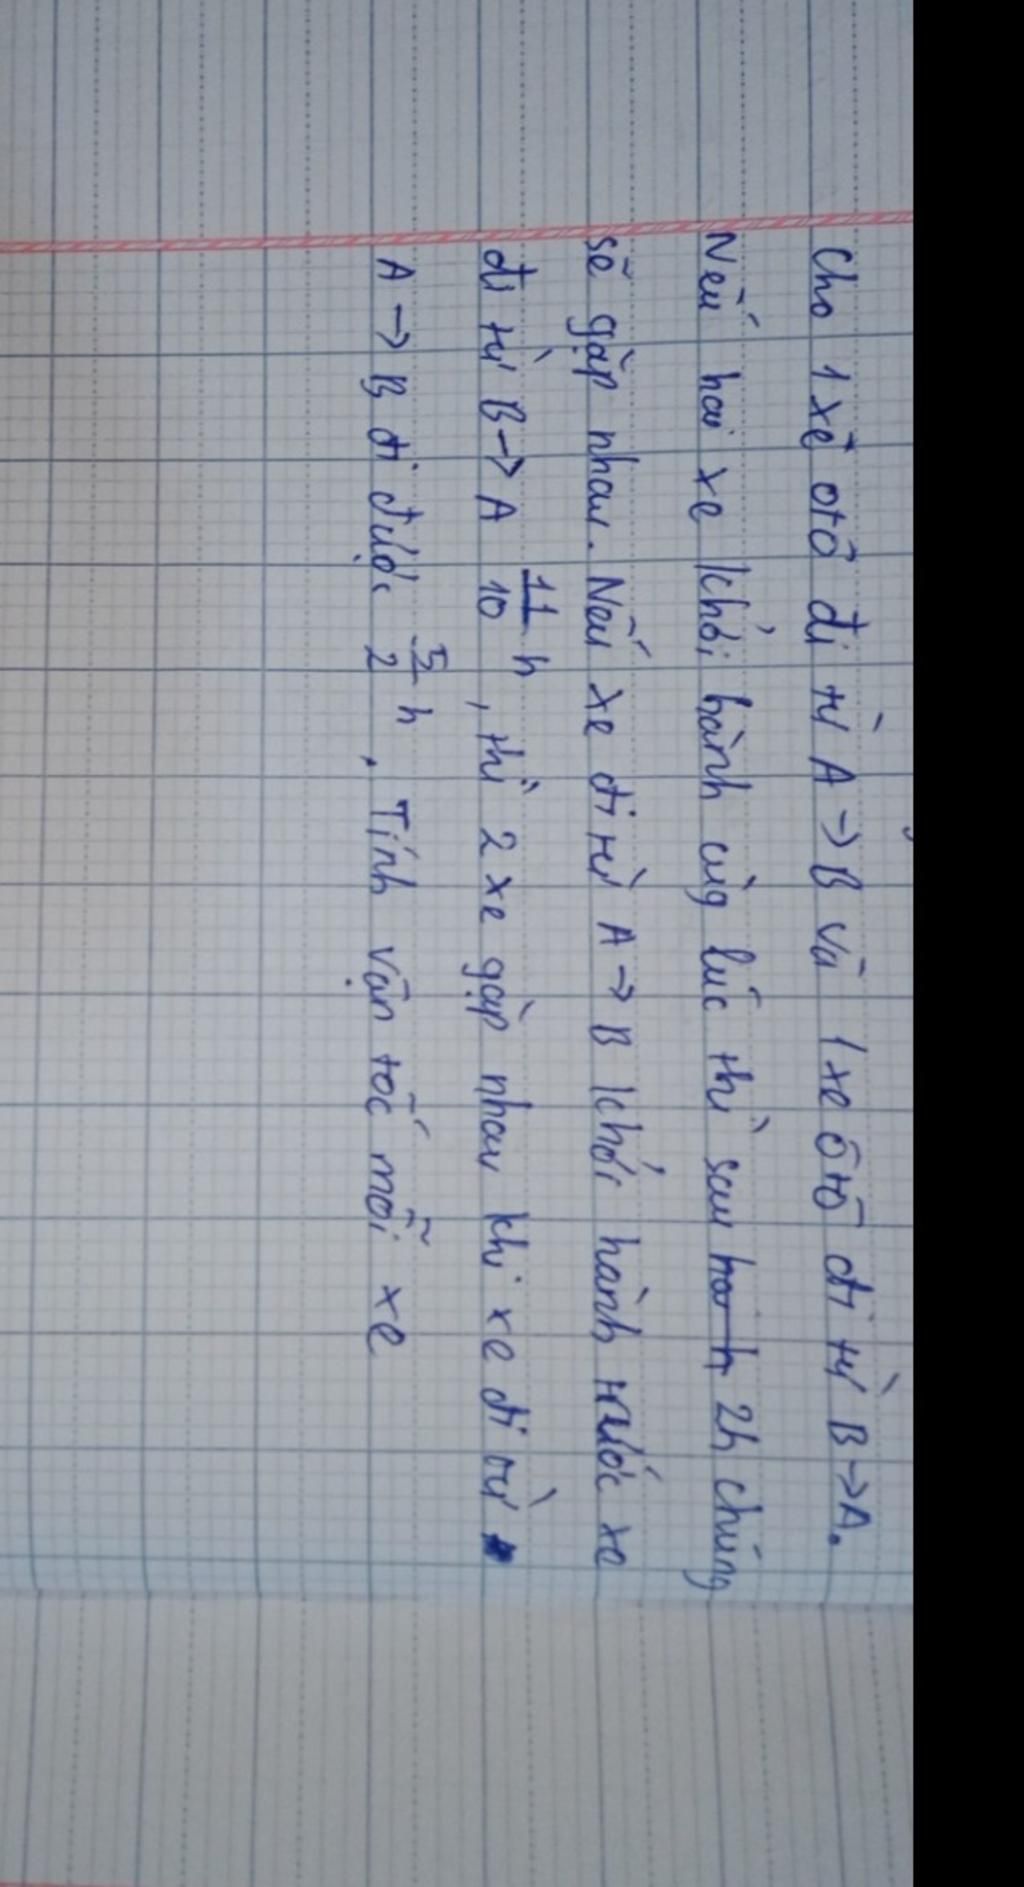 Cho 1 xe ôtô đi từ A → B và 1 xe ô tô đi từ B → A.
Nếu hai xe khởi hành cùg lúc thì sau 2h chúng
sẽ gặp nhau. Nếu xe đi từ A → B khởi hành trước xe
đi từ B → A 11/10 h, thì 2 xe gặp nhau khi xe đi từ
A → B đi được 5/2 h. Tính vận tốc mỗi xe